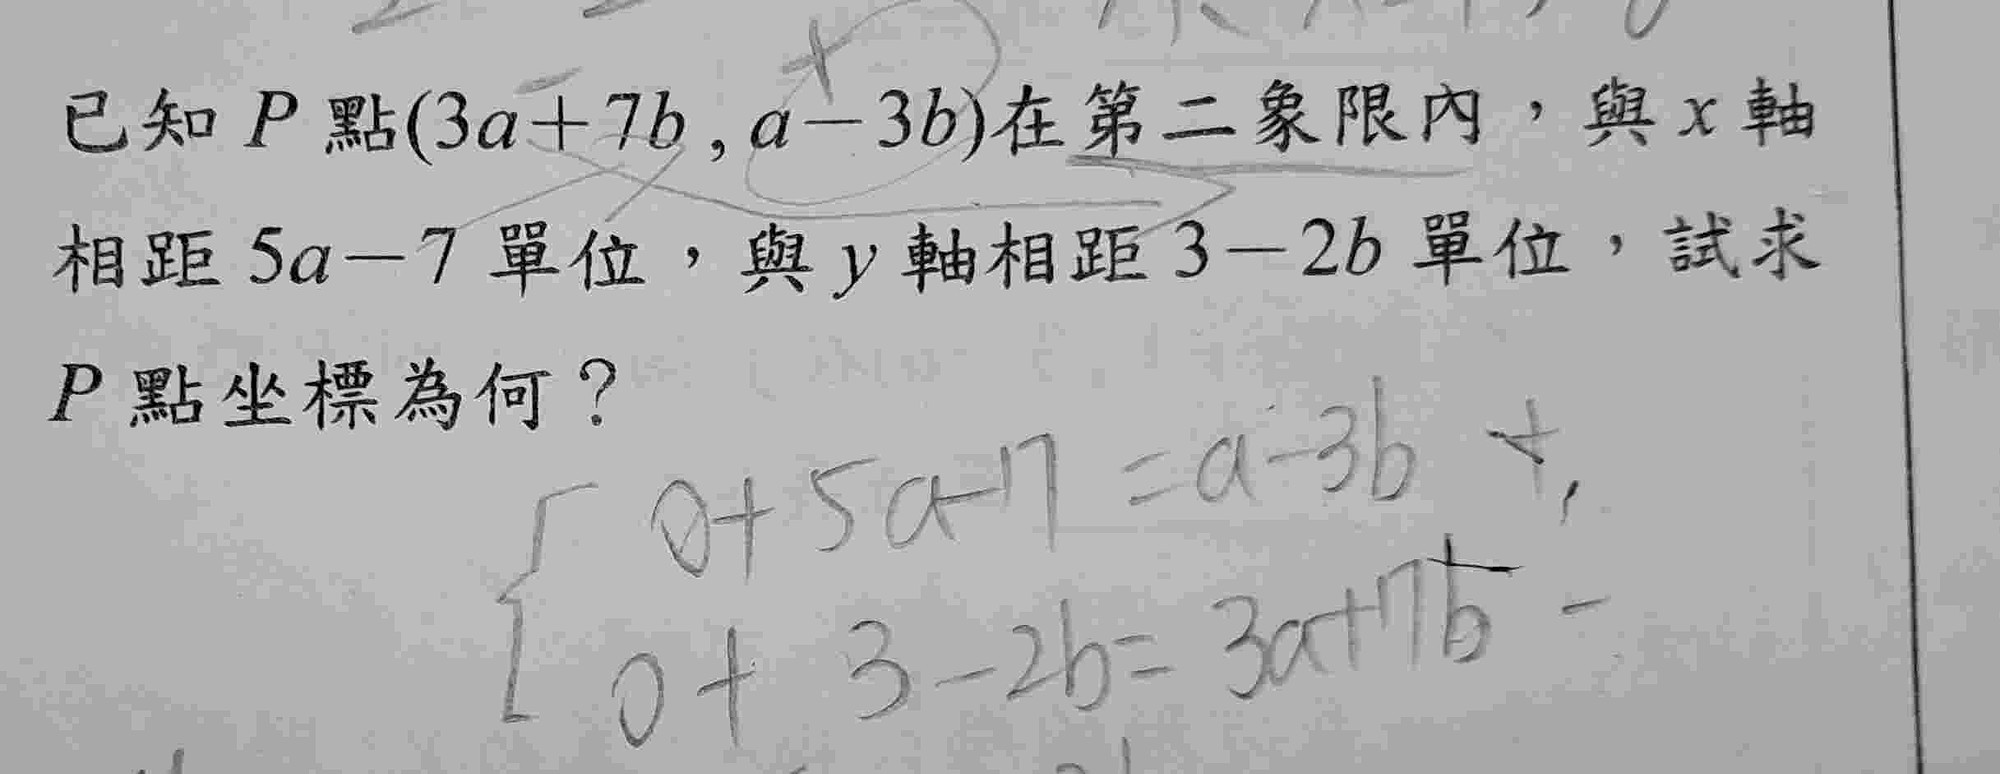 已知 P 點(3a+7b , a-3b)在第二象限內，與 x 軸
相距 5a-7 單位，與 y 軸相距 3-2b 單位，試求
P 點坐標為何？
0+5a-7=a-3b +,
0+3-2b=3a+7b -